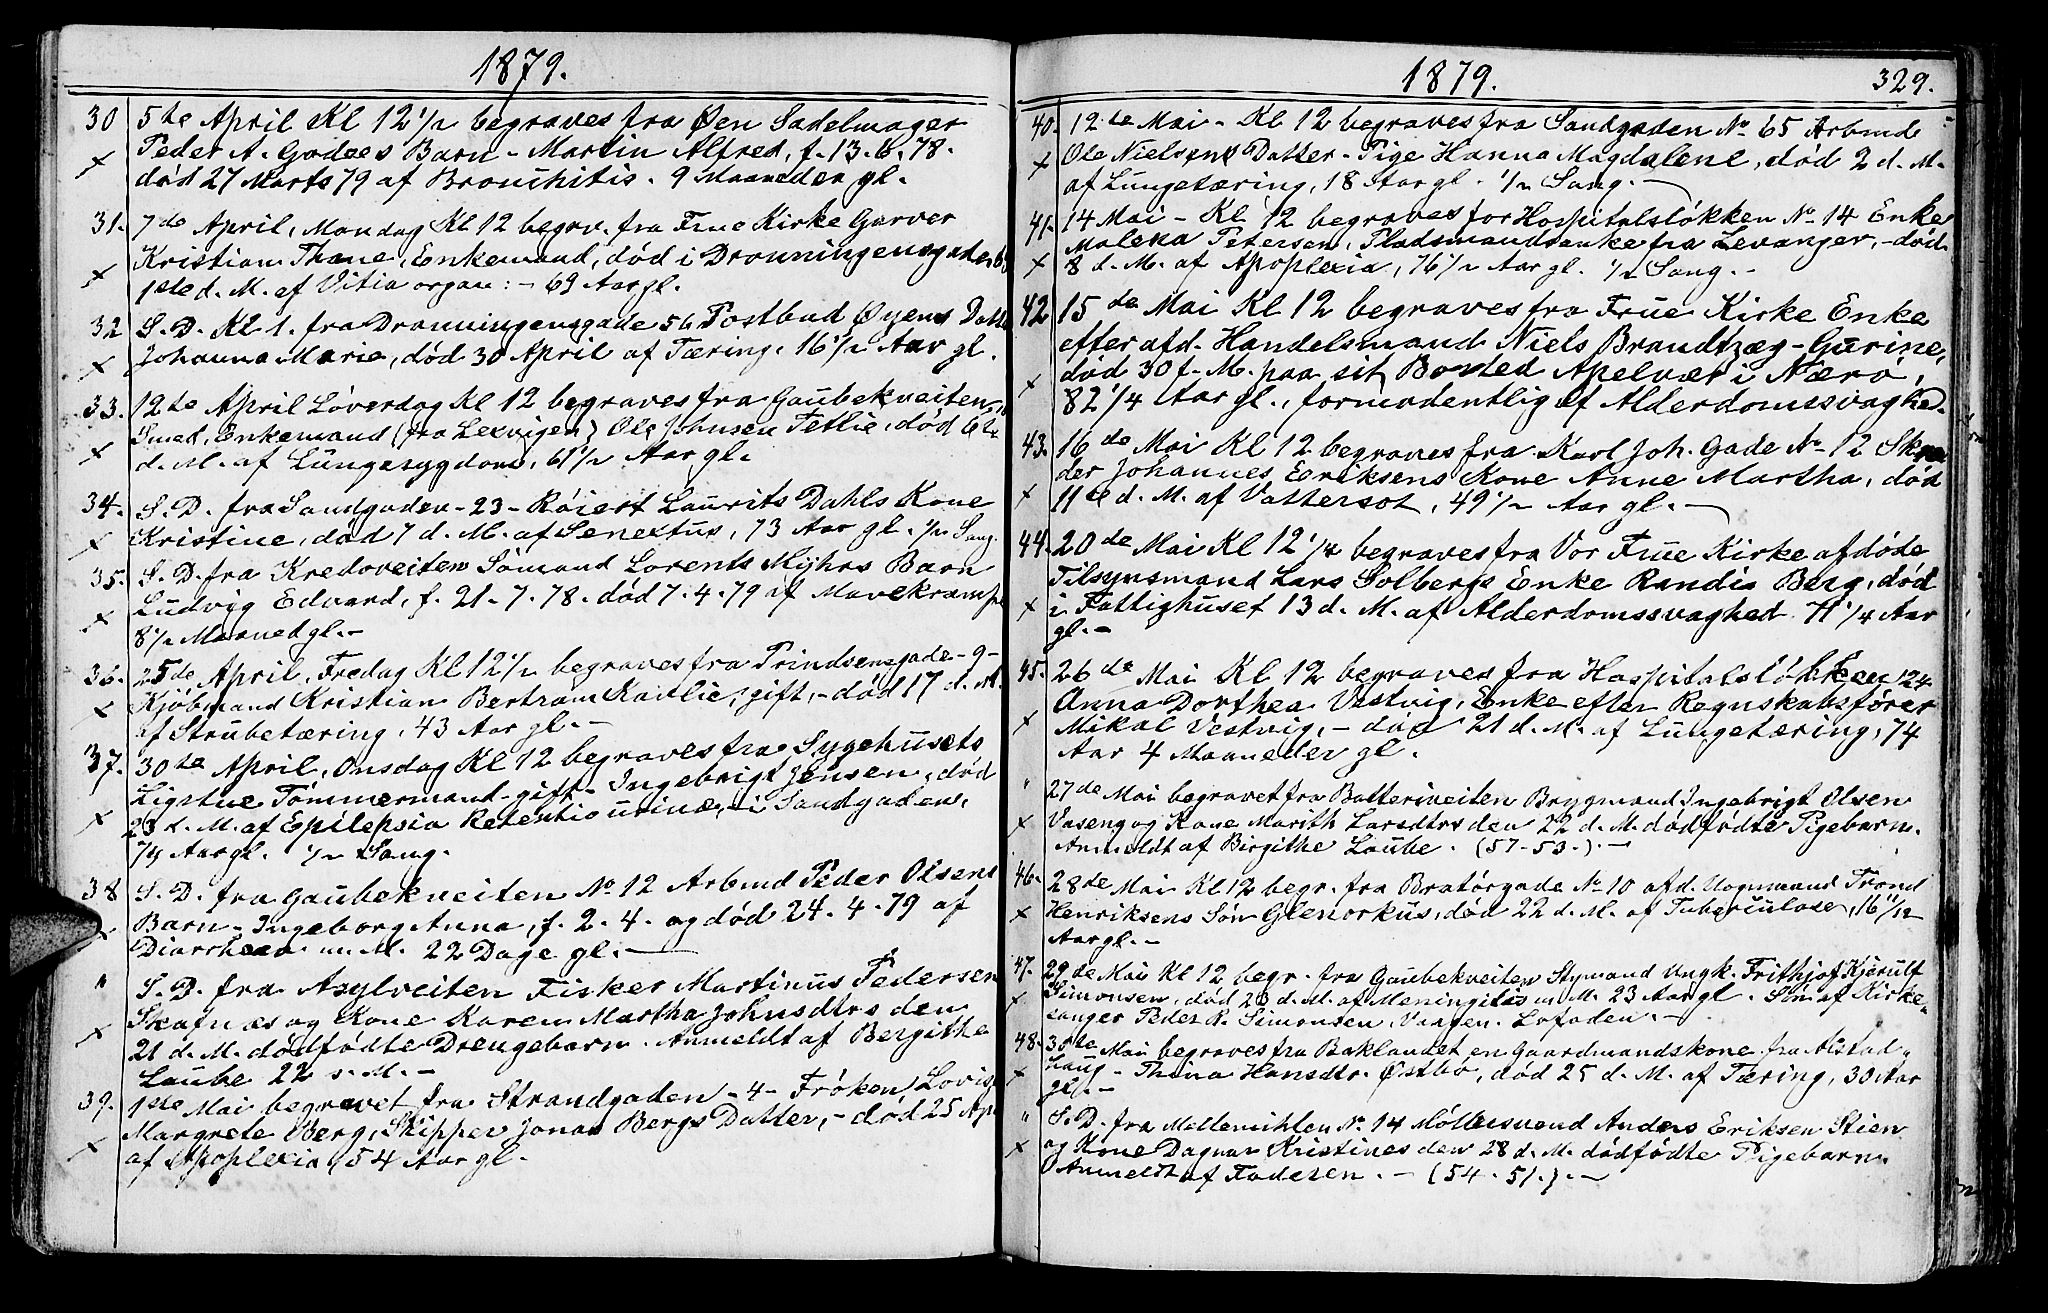 1879.
30 5te April Kl 12 1/2 begraves fra Øen Sadelmager
Peder A. Godøes Barn - Martin Alfred, f. 13.6.78.
død 27 Marts 79 af Bronchitis. 9 Maaneder gl.
31. 7de April, Mandag Kl 12 begrv. fra Frue Kirke Garver
Kristian Thane, Enkemand, død i Dronningensgade
1ste d. M. af Vitia organ: - 69 Aar gl.
32 S. D. Kl 1. fra Dronningensgade 56 Postbud Øyens Datter
Johanna Marie, død 30 April af Tæring. 16 1/2 Aar gl.
33. 12te April Løverdag Kl 12 begraves fra Gaubekveiten
Smed, Enkemand (fra Lexvigen) Ole Johnsen Tetlie, død 6te
d. M. af Lungesygdom, 61 1/2 Aar gl.
34. S. D. fra Sandgaden - 23 - Röiert Laurits Dahls Kone
Kristine, død 7 d. M. af Senectus, 73 Aar gl. 1/2 Sang.
35. S. D. fra Kredoveiten Sömand Lorents Myhrs Barn
Ludvig Edvard, f. 21.7.78. død 7.4.79 af Mavekrampe
8 1/2 Maaned gl. -
36. 25de April, Fredag Kl 12 1/2 begraves fra Prindsensgade - 9 -
Kjöbmand Kristian Bertram Kavlie, gift, - død 17 d. M.
af Strubetæring, 43 Aar gl. -
37. 30te April, Onsdag Kl 12 begraves fra Sygehusets
Ligstue Tömmermand - gift - Ingebrigt Jensen, død
23 d. M. af Epilepsia Retentio urinæ, - i Sandgaden,
74 Aar gl. 1/2 Sang.
38 S. D. fra Gaubekveiten No 12 Arbmd Peder Olsens
Barn - Ingeborg Anna, f. 2.4. og død 24.4.79 af
Diarrhea m. M. 22 Dage gl. -
" S. D. fra Asylveiten Fisker Martinus Pedersen
Skafnæs og Kone Karen Martha Johnsdtrs den
21 d. M. dödfödte Drengebarn. Anmeldt af Bergithe
Laube 22 s. M. -
39. 1ste Mai begravet fra Strandgaden - 4 - Fröken Lovise
Margrete Berg, Skipper Jonas Bergs Datter, - død 25 Apr
af Apoplexia, 54 Aar gl.
1879. 329.
40. 12te Mai - Kl 12 begraves fra Sandgaden No 65 Arbmd
Ole Nielsens Datter - Pige Hanna Magdalene, død 2 d. M.
af Lungetæring, 18 Aar gl. 1/2 Sang. -
41. 14 Mai - Kl 12 begraves for Hospitalslökken No 14 Enke
Malena Petersen, Pladsmandsenke fra Levanger, - død
8 d. M. af Apoplexia, 76 1/2 Aar gl. 1/2 Sang. -
42 15de Mai Kl 12 begraves fra Frue Kirke Enke
efter afd. Handelsmand Niels Brandtzæg - Gurine,
død 30 f. M. paa sit Bosted Apelvær i Nærö,
82 1/4 Aar gl., formodentlig af Alderdomssvaghed.
43. 16de Mai Kl 12 begraves fra Karl Joh. Gade No 12 Skræ
der Johannes Eeriksens Kone Anne Martha, død
11te d. M. af Vattersot, 49 1/2 Aar gl. -
44. 20de Mai Kl 12 1/4 begraves fra Vor Frue Kirke afdøde
Tilsynsmand Lars Solbergs Enke Randia Berg, død
i Fattighuset 13 d. M. af Alderdomssvaghed 71 1/4 Aar
gl. -
45. 26de Mai Kl 12 begraves fra Hospitalslökken 24
Anna Dorthea Vestvig, Enke efter Regnskabsförer
Mikal Vestvig, - død 21 d. M. af Lungetæring, 74
Aar 4 Maaneder gl.
" 27de Mai begravet fra Batteriveiten Brygmand Ingebrigt Olsen
Vaseng og Kone Marith Larsdtrs den 22 d. M. dödfödte Pigebarn.
Anmeldt af Birgithe Laube. (57-53.). -
46. 28de Mai Kl 12 begr. fra Bratörgade No 10 afd. Vognmand Trond
Henriksens Sön Glenorkus, død 22 d. M. af Tuberculose, 16 1/12
Aar gl. -
47. 29de Mai Kl 12 begr. fra Gaubekveiten Stymand Ungk. Frithjof Kjerulf
Simonsen, død 23 d. M. af Meningitis m. M. 23 Aar gl. Sön af Kirke-
sanger Peder R. Simonsen, Vaagen. Lofoden. -
48. 30te Mai begraves fra Baklandet en Gaardmandskone fra Alstad-
haug - Thina Hansdtr. Østbö, død 25 d. M. af Tæring, 30 Aar
gl. -
" S. D. fra Mellemihlen No 14 Möllersvend Anders Eriksen Stien
og Kone Dagnar Kristines den 28 d. M. dödfödte Pigebarn
Anmeldt af Faderen. - (54.51.). -